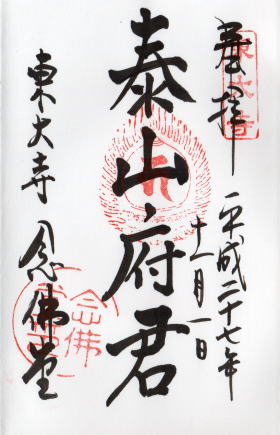 奉拝
平成二十七年
十一月一日
泰山府君
東大寺 念佛堂
東大寺
念佛